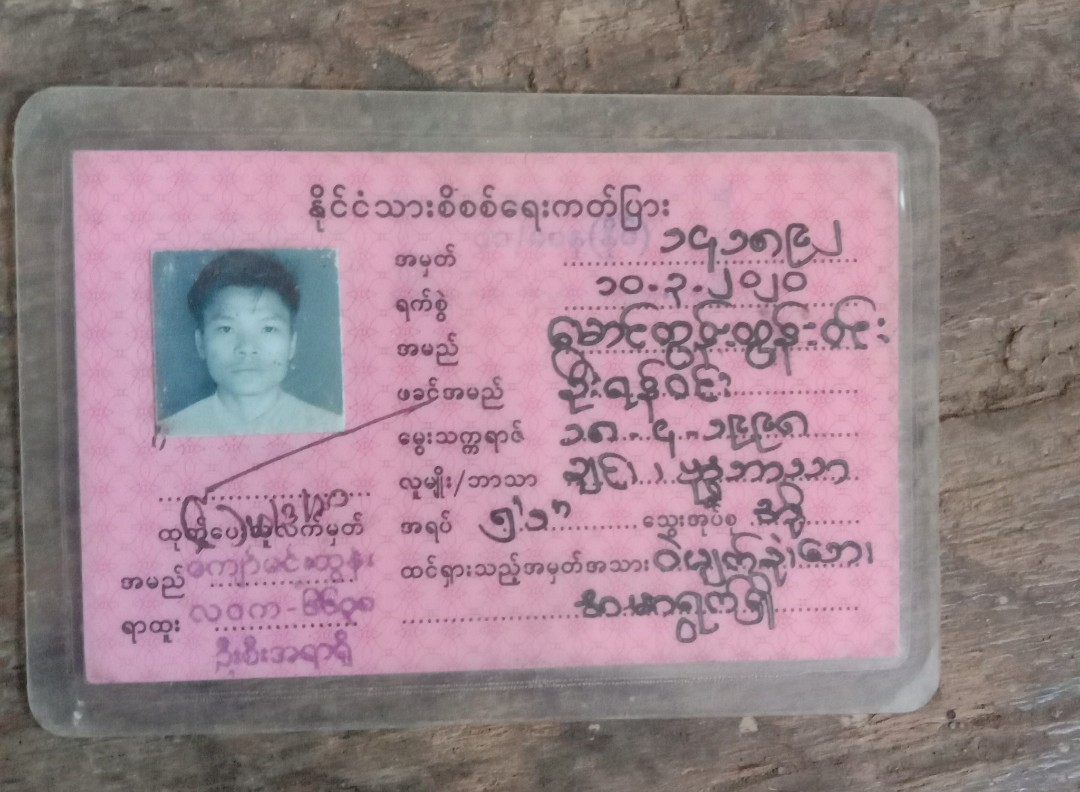 နိုင်ငံသားစိစစ်ရေးကတ်ပြား
အမှတ် ၁၄၁၈၉၂
ရက်စွဲ ၁၀.၃.၂၀၂၀
အမည် မောင်ထွန်းထွန်းဝင်း
ဖခင်အမည် ဦးရန်ဝင်း
မွေးသက္ကရာဇ် ၁၈.၄.၁၉၉၈
လူမျိုး/ဘာသာ ချင်း၊ ဗုဒ္ဓဘာသာ
အရပ် ၅'၁" သွေးအုပ်စု
ထင်ရှားသည့်အမှတ်အသား
ထုတ်ပေးသူလက်မှတ်
အမည် ကျော်မင်းထွန်း
ရာထူး လဝက-
ဦးစီးအရာရှိ